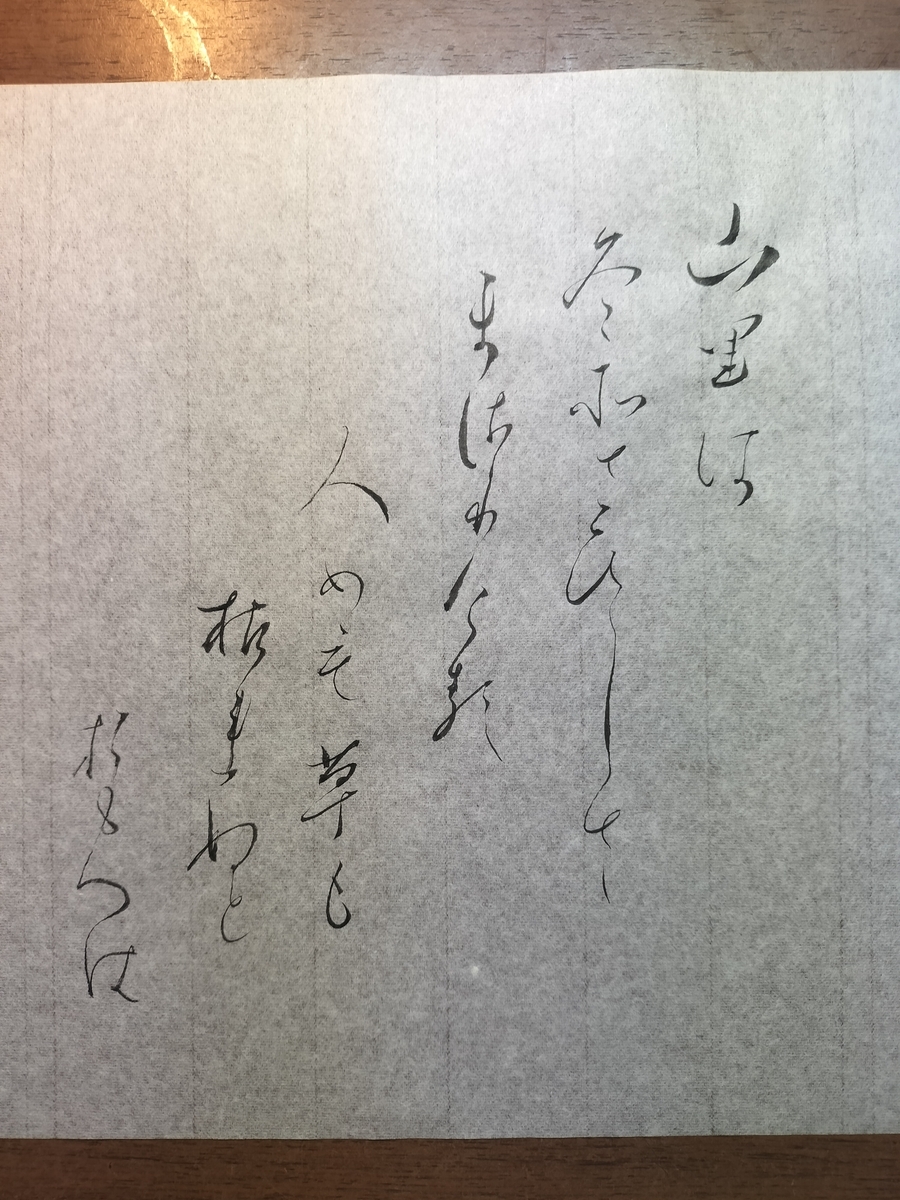 山里は
冬そさひしさ
まさりける
人めも草も
枯れぬと
おもへは